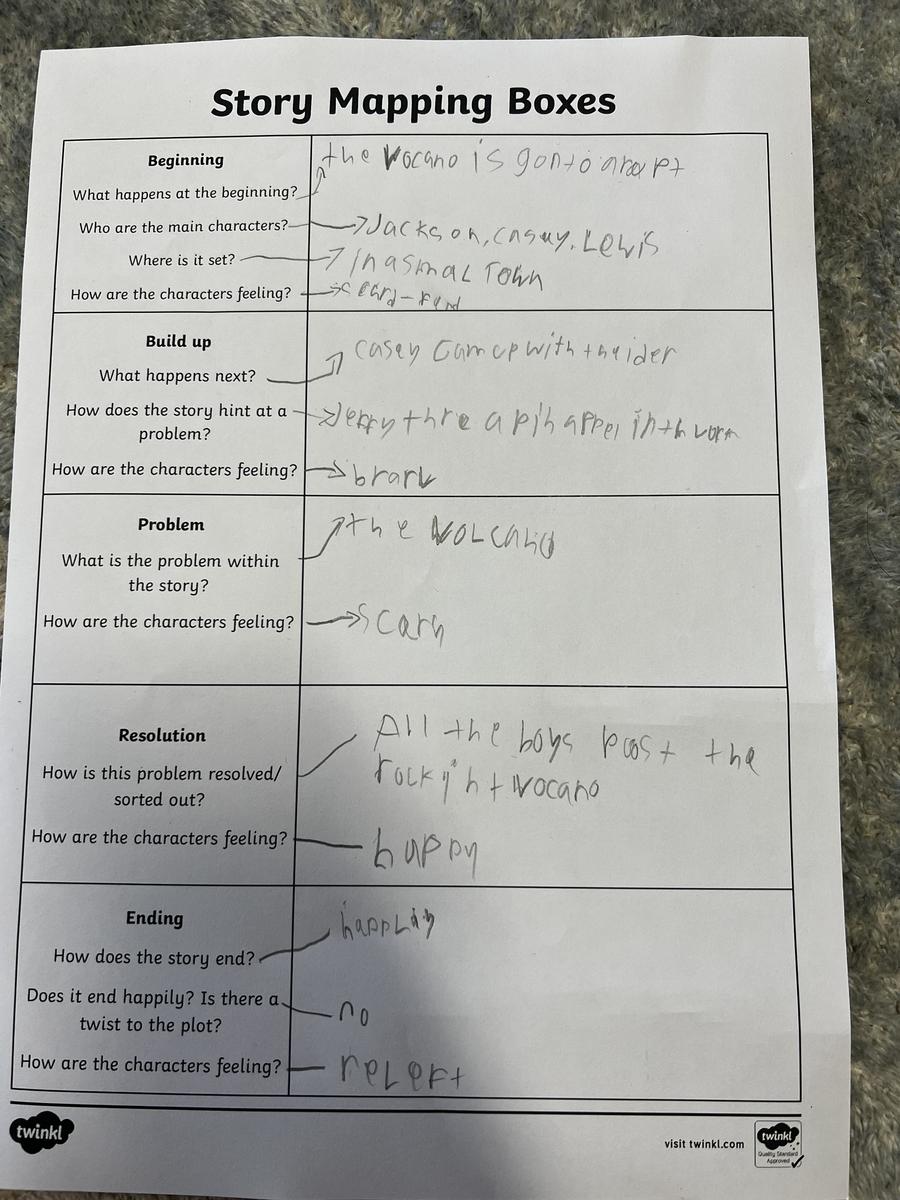 Story Mapping Boxes
Beginning
the vocano is gonto
What happens at the beginning?
Who are the main characters?
Jackson, casuy, Lewis
Where is it set?
in a smal Town
How are the characters feeling?
Build up
casey Cam up with the ider
What happens next?
How does the story hint at a
problem?
Jerry thre a
How are the characters feeling?
Problem
the VOLCANO
What is the problem within
the story?
How are the characters feeling?
Resolution
All the boys poost the
rock in t vocano
How is this problem resolved/
sorted out?
How are the characters feeling?
happy
Ending
How does the story end?
Does it end happily? Is there a
twist to the plot?
no
How are the characters feeling?
twinkl
visit twinkl.com
twinkl
Quality Standard
Approved